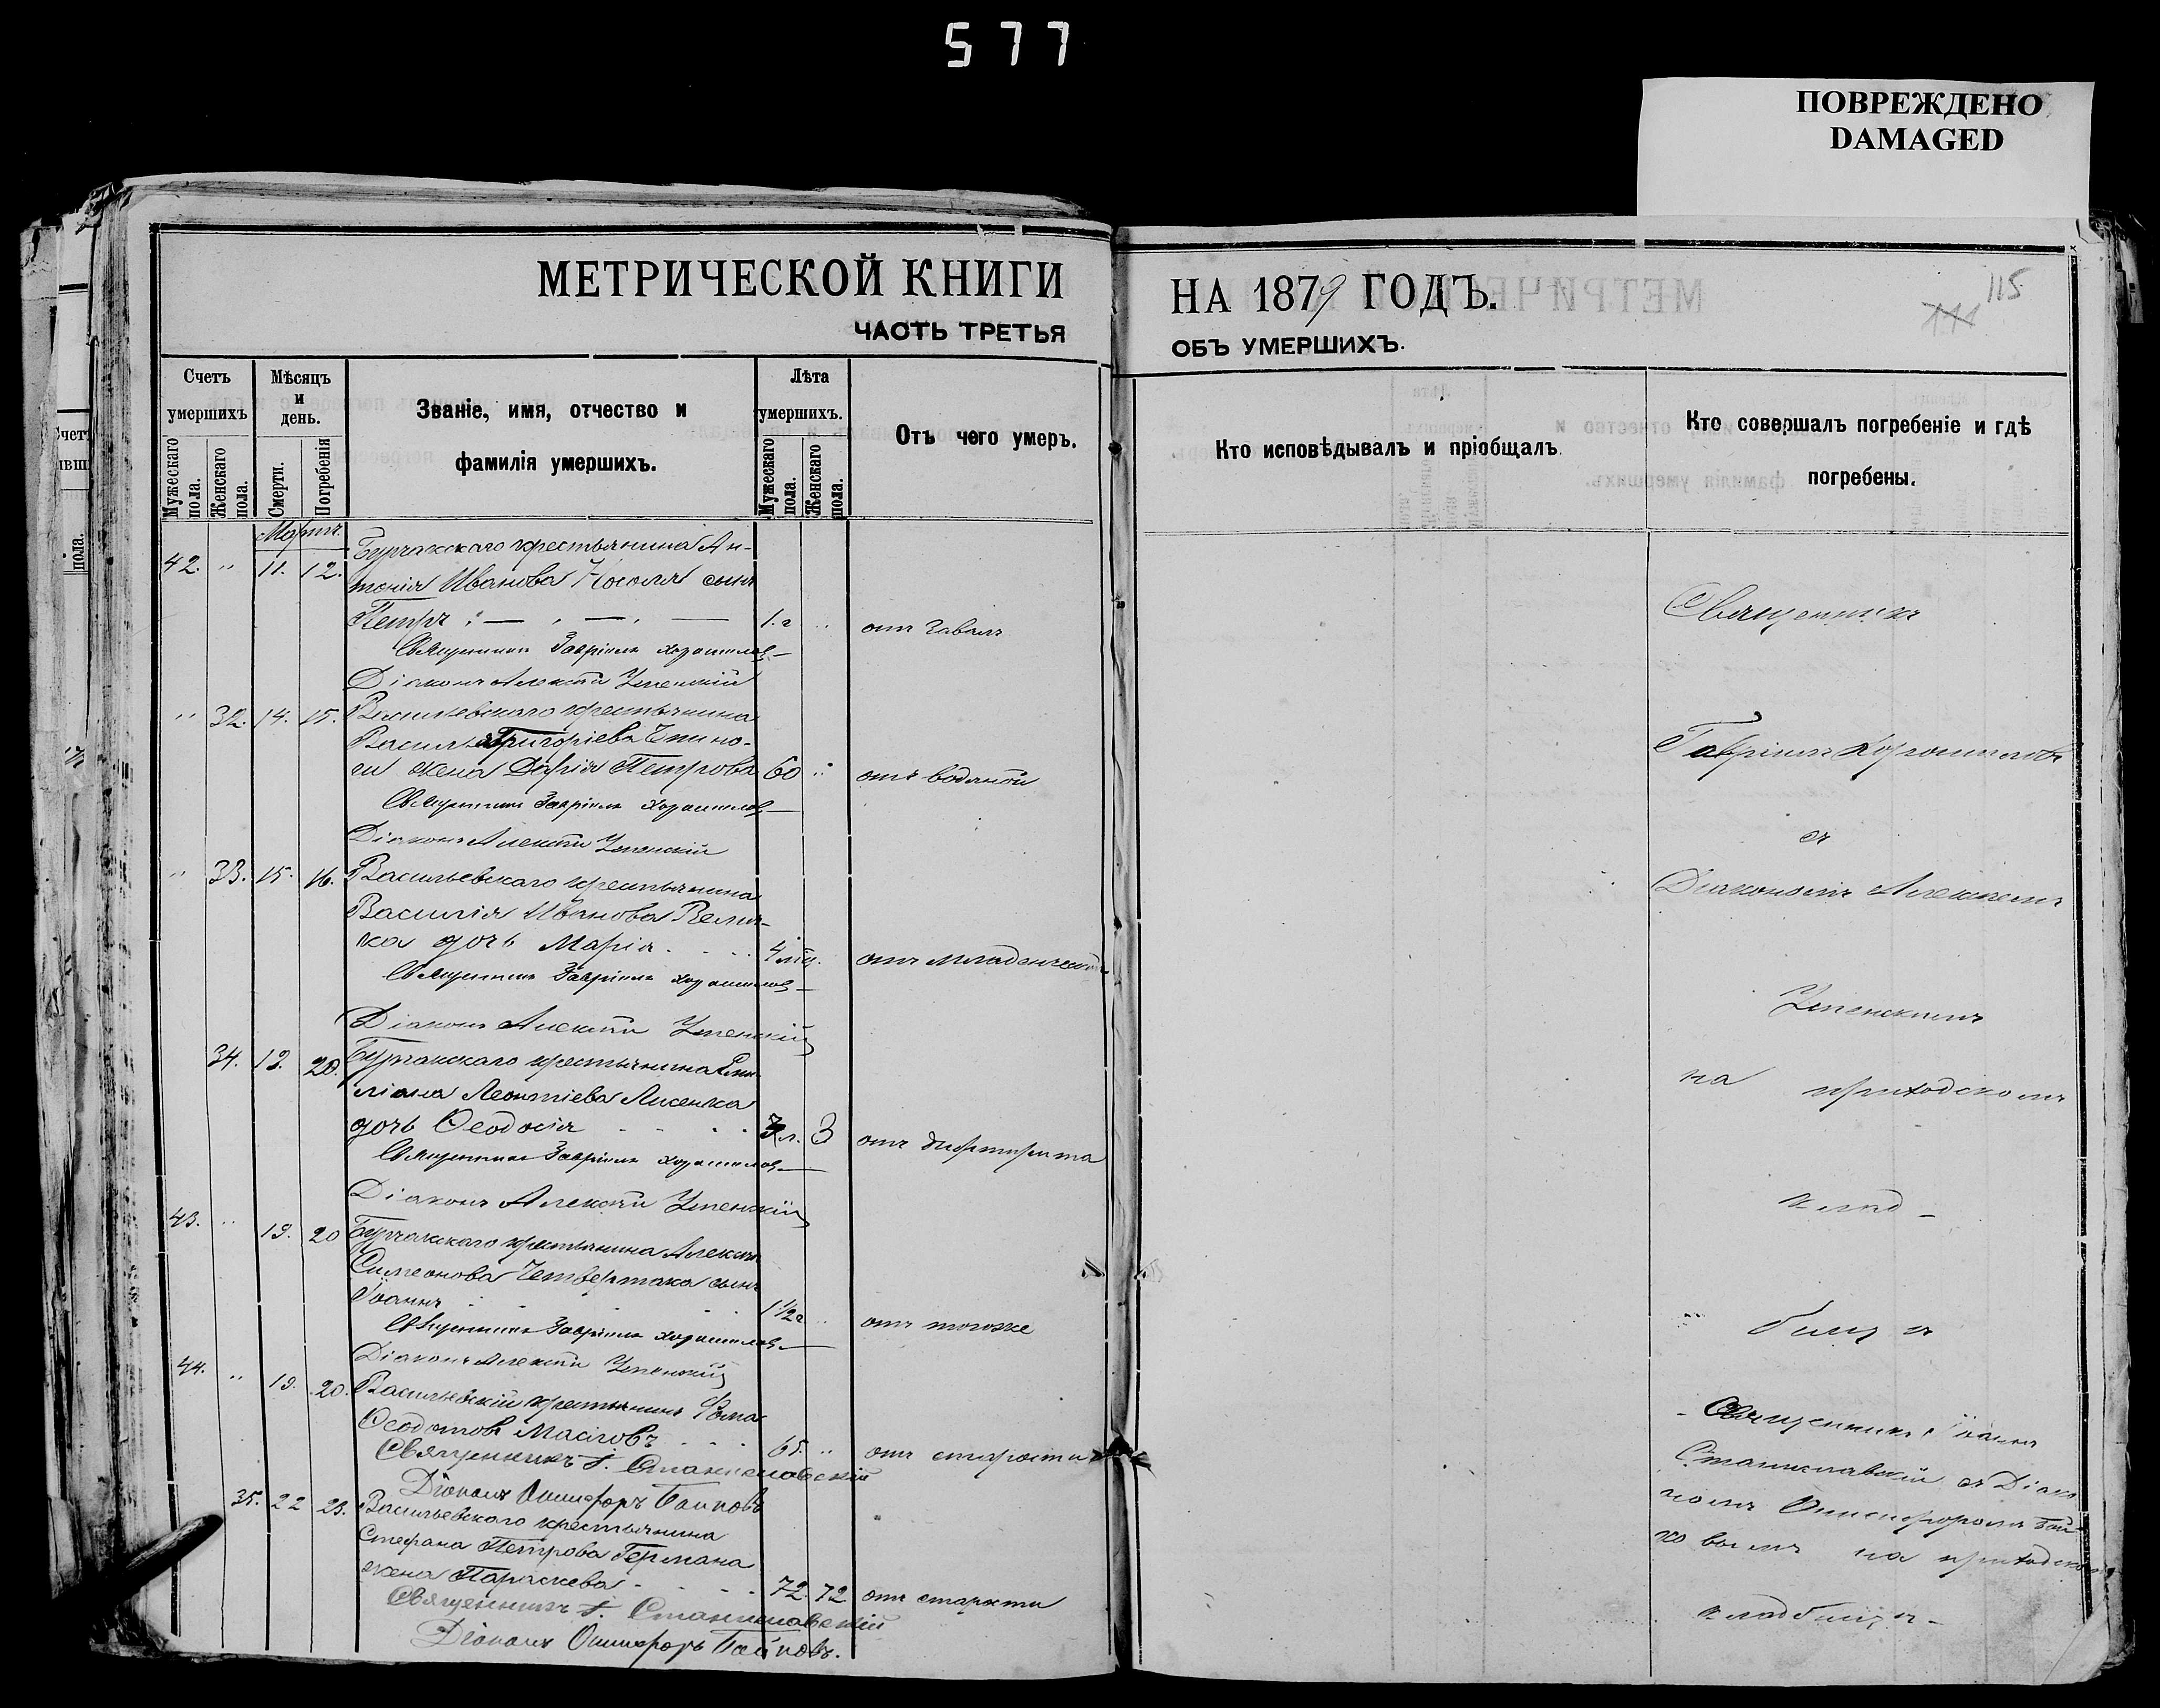 577
ПОВРЕЖДЕНО
DAMAGED
МЕТРИЧЕСКОЙ КНИГИ
ЧАСТЬ ТРЕТЬЯ
НА 1879 ГОДЪ.
ОБЪ УМЕРШИХЪ.
115
111
Счетъ умершихъ
Мужескаго пола.
Женскаго пола.
Мѣсяцъ и день.
Смерти.
Погребенія
Званіе, имя, отчество и
фамилія умершихъ.
Лѣта умершихъ.
Мужескаго пола.
Женскаго пола.
Отъ чего умеръ.
Кто исповѣдывалъ и пріобщалъ
Кто совершалъ погребеніе и гдѣ
погребены.
Мартъ.
42. " 11. 12. крестьянина Ан-
тонія Иванова сынъ
Петръ 1.г " отъ
Священникъ Гавріилъ Хорошиловъ
Діаконъ Алексѣй Успенскій
" 32. 14. 15. Васильевскаго крестьянина
Василія Григоріева
жена Дарія Петрова 60 " отъ водяной
Священникъ Гавріилъ Хорошиловъ
Діаконъ Алексѣй Успенскій
" 33. 15. 16. Васильевскаго крестьянина
Василія Иванова
дочь Марія 4 отъ младенческой
Священникъ Гавріилъ Хорошиловъ
Діаконъ Алексѣй Успенскій
34. 19. 20. крестьянина
Леонтіева Лисенка
дочь Ѳеодосія 3 отъ дифтерита
Священникъ Гавріилъ Хорошиловъ
Діаконъ Алексѣй Успенскій
43. " 19. 20 крестьянина
Симеонова Четвертака сынъ
Іоаннъ 1½г " отъ тогоже
Священникъ Гавріилъ Хорошиловъ
Діаконъ Алексѣй Успенскій
44. " 19. 20. Васильевскій крестьянинъ Ѳома
Ѳеодотовъ 65. " отъ старости
Священникъ І. Станиславскій
Діаконъ Онисифоръ Байковъ
35. 22 23. Васильевскаго крестьянина
Стефана Петрова Германа
жена Параскева 72. 72 отъ старости
Священникъ І. Станиславскій
Діаконъ Онисифоръ Байковъ.
Священникъ
Гавріилъ Хорошиловъ
съ
Діакономъ Алексѣемъ
Успенскимъ
на приходскомъ
клад-
бищѣ
Священникъ Іоаннъ
Станиславскій съ Діако
номъ Онисифоромъ Бай
ковымъ на приходскомъ
кладбищѣ-